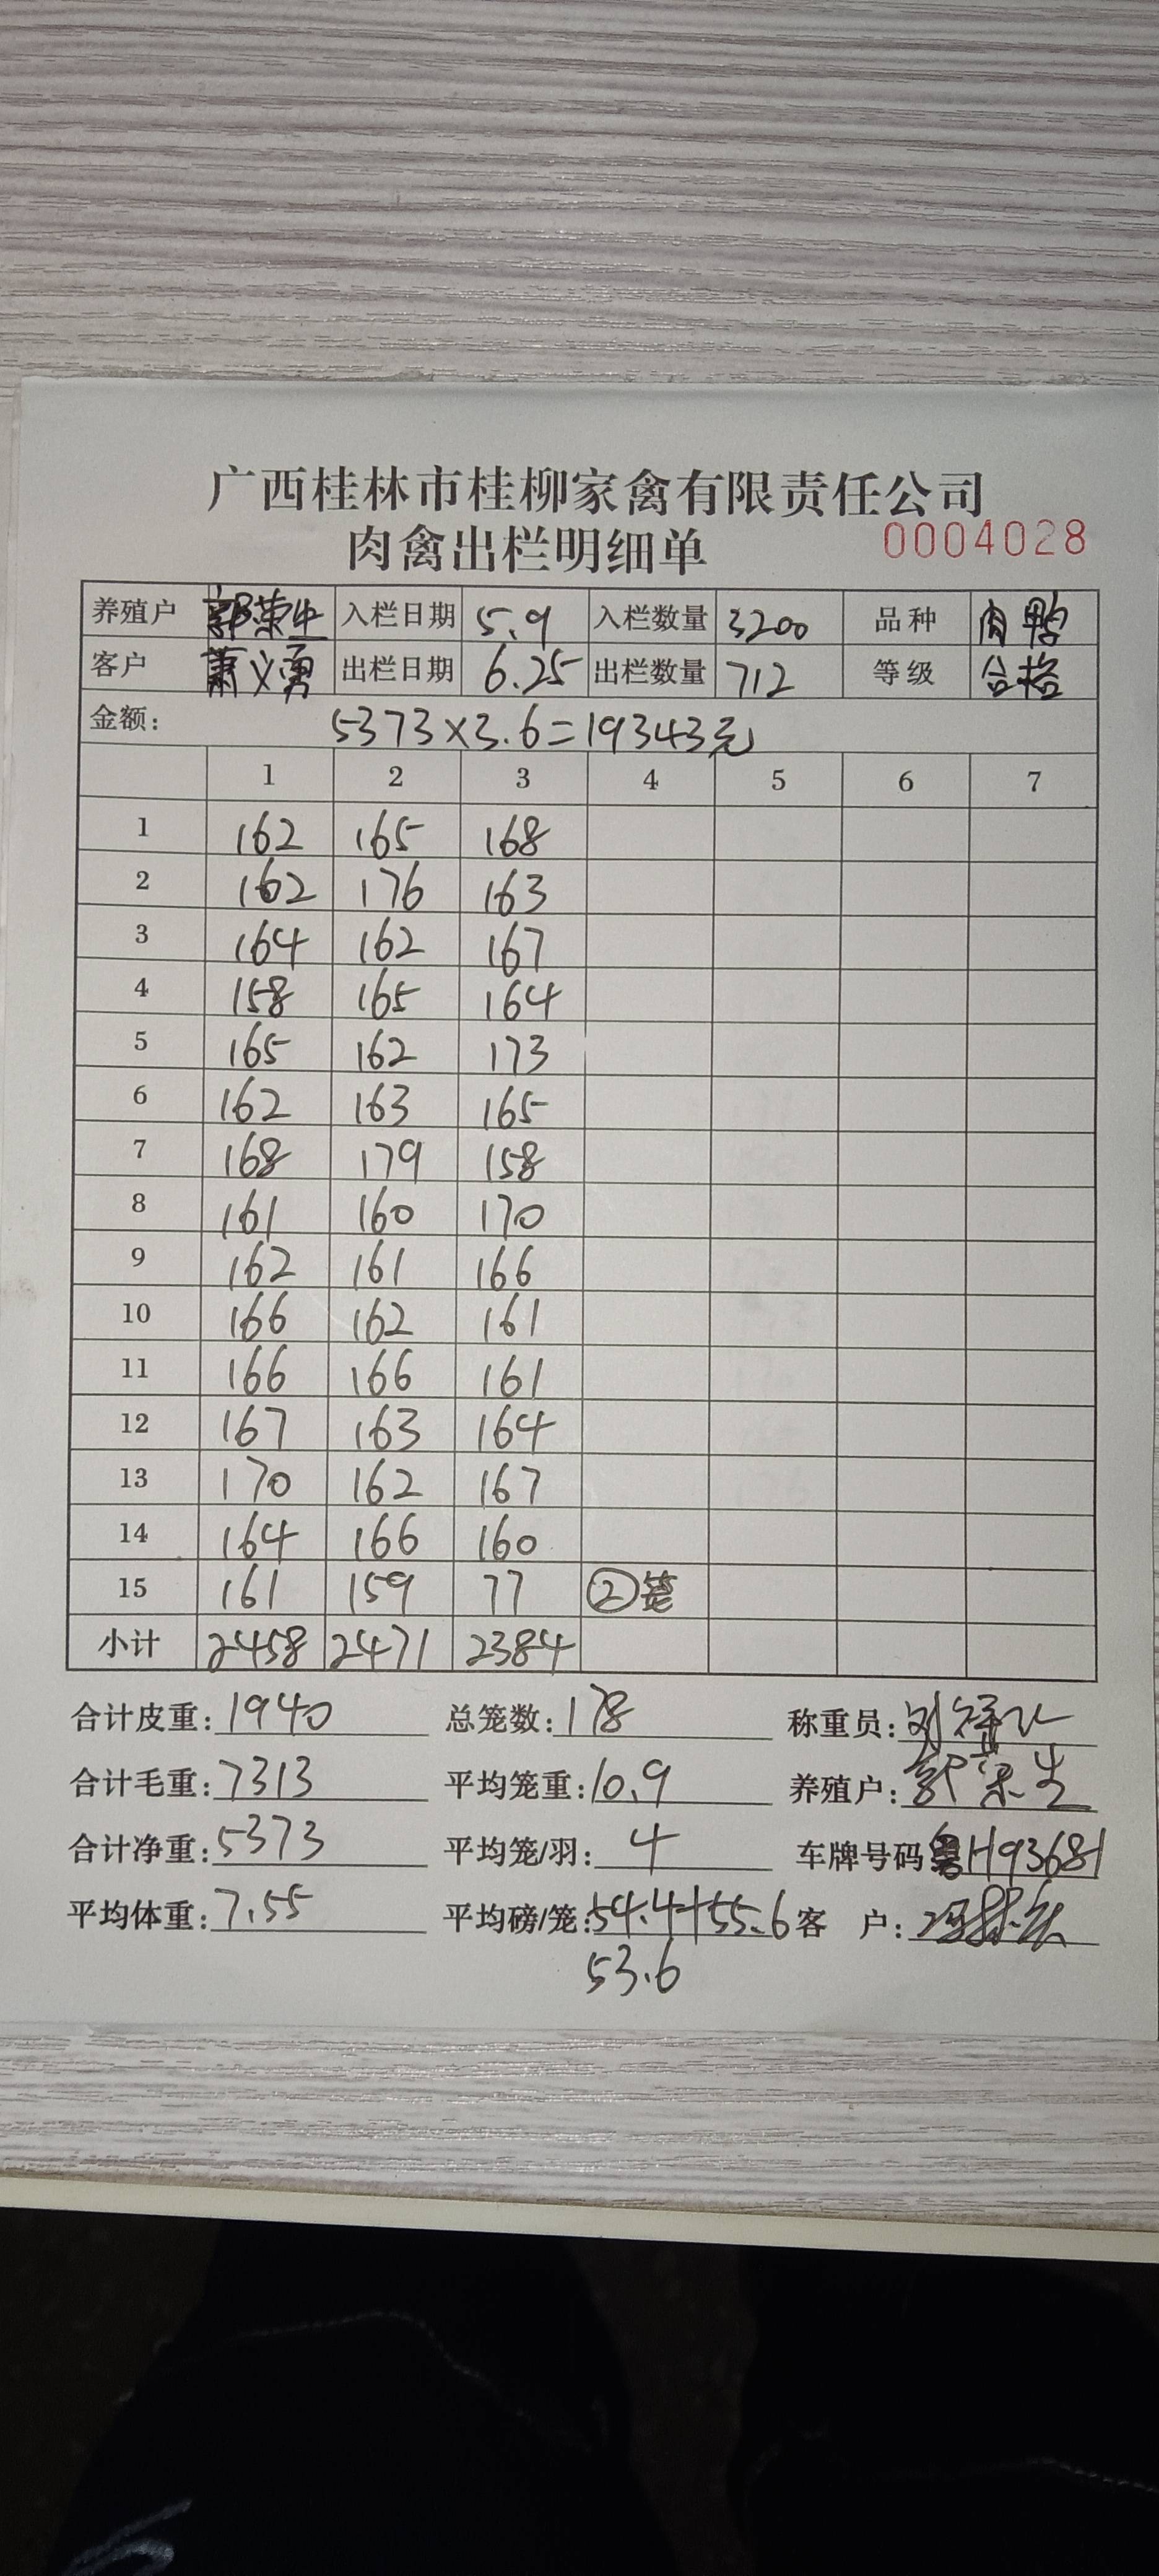 广西桂林市桂柳家禽有限责任公司
肉禽出栏明细单 0004028
养殖户 郭荣生 入栏日期 5.9 入栏数量 3200 品种 肉鸭
客户 萧义勇 出栏日期 6.25 出栏数量 712 等级 合格
金额: 5373×3.6=19343元
1 2 3 4 5 6 7
1 162 165 168
2 162 176 163
3 164 162 167
4 158 165 164
5 165 162 173
6 162 163 165
7 168 179 158
8 161 160 170
9 162 161 166
10 166 162 161
11 166 166 161
12 167 163 164
13 170 162 167
14 164 166 160
15 161 159 77 ②笼
小计 2458 2471 2384
合计皮重: 1940 总笼数: 178 称重员:
合计毛重: 7313 平均笼重: 10.9 养殖户: 郭荣生
合计净重: 5373 平均笼/羽: 4 车牌号码 粤H93681
平均体重: 7.55 平均磅/笼: 54.4+55.6 客 户:
53.6